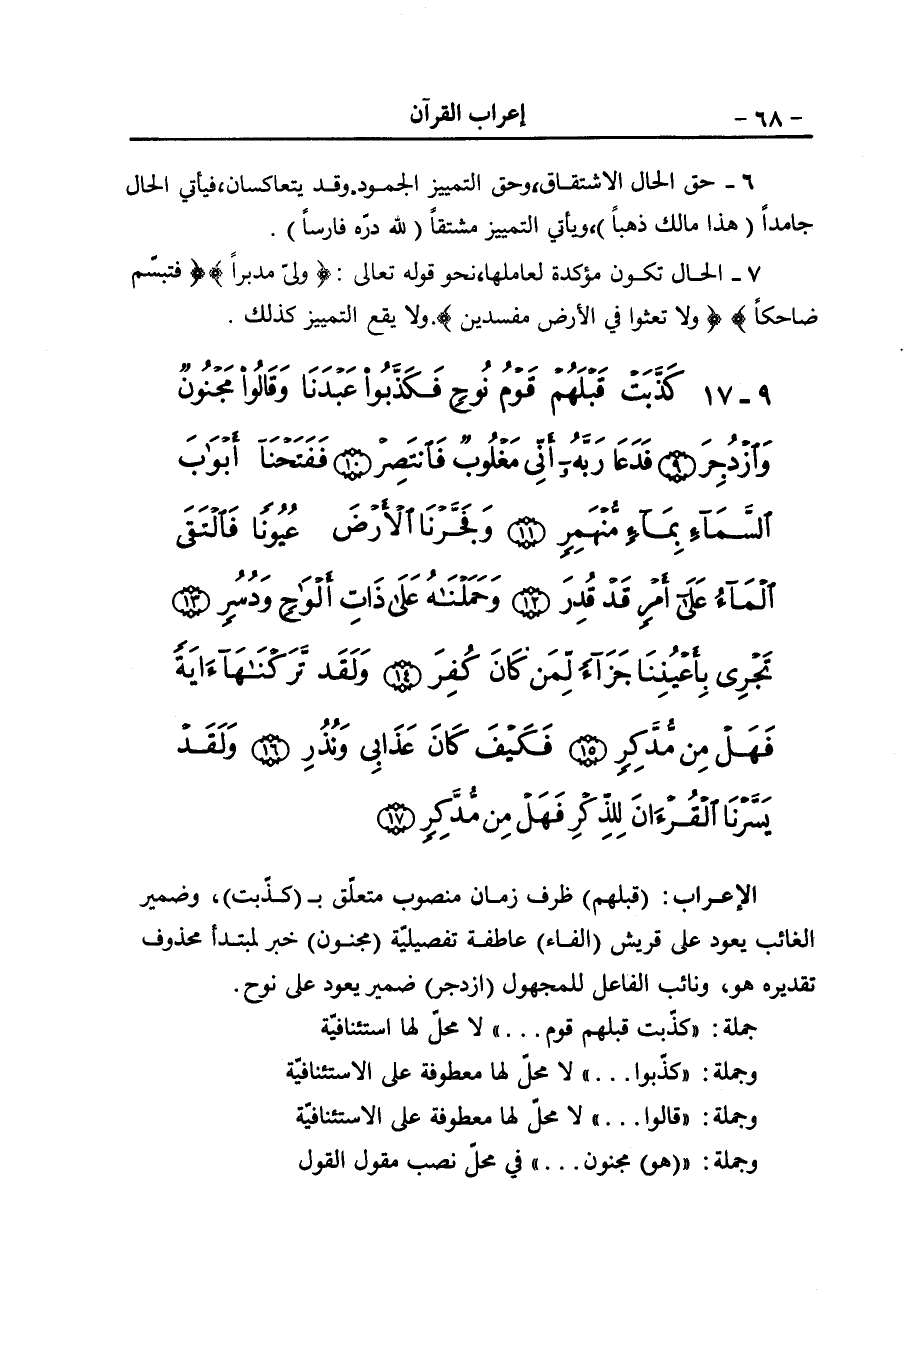 إعراب القرآن - ٦٨ -
٦ - حق الحال الاشتقاق، وحق التمييز الجمود. وقد يتعاكسان، فيأتي الحال
جامداً ( هذا مالك ذهباً )، ويأتي التمييز مشتقاً ( لله درّه فارساً ) .
٧ - الحال تكون مؤكدة لعاملها، نحو قوله تعالى : ﴿ ولىّ مدبراً ﴾ ﴿ فتبسّم
ضاحكاً ﴾ ﴿ ولا تعثوا في الأرض مفسدين ﴾. ولا يقع التمييز كذلك .
٩ - ١٧ كَذَّبَتْ قَبْلَهُمْ قَوْمُ نُوحٍ فَكَذَّبُوا۟ عَبْدَنَا وَقَالُوا۟ مَجْنُونٌ
وَٱزْدُجِرَ ﴿٩﴾ فَدَعَا رَبَّهُۥٓ أَنِّى مَغْلُوبٌ فَٱنتَصِرْ ﴿١٠﴾ فَفَتَحْنَآ أَبْوَٰبَ
ٱلسَّمَآءِ بِمَآءٍ مُّنْهَمِرٍ ﴿١١﴾ وَفَجَّرْنَا ٱلْأَرْضَ عُيُونًا فَٱلْتَقَى
ٱلْمَآءُ عَلَىٰٓ أَمْرٍ قَدْ قُدِرَ ﴿١٢﴾ وَحَمَلْنَٰهُ عَلَىٰ ذَاتِ أَلْوَٰحٍ وَدُسُرٍ ﴿١٣﴾
تَجْرِى بِأَعْيُنِنَا جَزَآءً لِّمَن كَانَ كُفِرَ ﴿١٤﴾ وَلَقَد تَّرَكْنَٰهَآ ءَايَةً
فَهَلْ مِن مُّدَّكِرٍ ﴿١٥﴾ فَكَيْفَ كَانَ عَذَابِى وَنُذُرِ ﴿١٦﴾ وَلَقَدْ
يَسَّرْنَا ٱلْقُرْءَانَ لِلذِّكْرِ فَهَلْ مِن مُّدَّكِرٍ ﴿١٧﴾
الإعراب : (قبلهم) ظرف زمان منصوب متعلّق بـ (كذّبت)، وضمير
الغائب يعود على قريش (الفاء) عاطفة تفصيليّة (مجنون) خبر لمبتدأ محذوف
تقديره هو، ونائب الفاعل للمجهول (ازدجر) ضمير يعود على نوح.
جملة : «كذّبت قبلهم قوم ...» لا محلّ لها استئنافيّة
وجملة : «كذّبوا ...» لا محلّ لها معطوفة على الاستئنافيّة
وجملة : «قالوا ...» لا محلّ لها معطوفة على الاستئنافيّة
وجملة : «(هو) مجنون ...» في محلّ نصب مقول القول